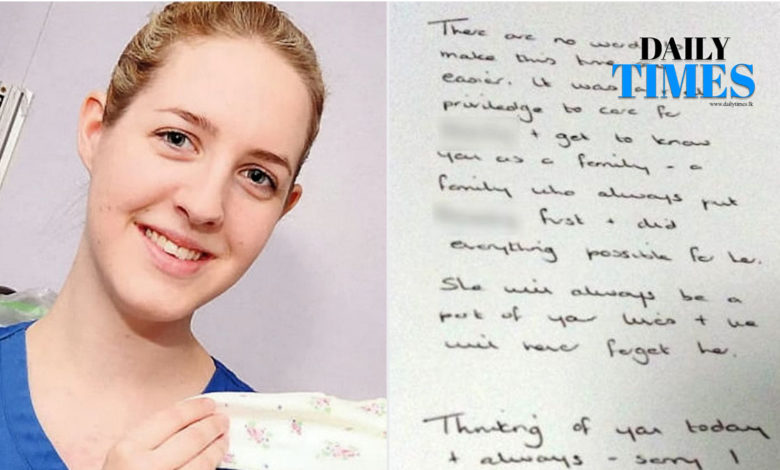 DAILY
TIMES
www.dailytimes.lk
There are no
make this
easier. It was a
priviledge to care for
+ get to know
you as a family - a
family who always put
first + did
everything possible for her.
She will always be a
part of your lives + we
will never forget her.
Thinking of you today
+ always - sorry I